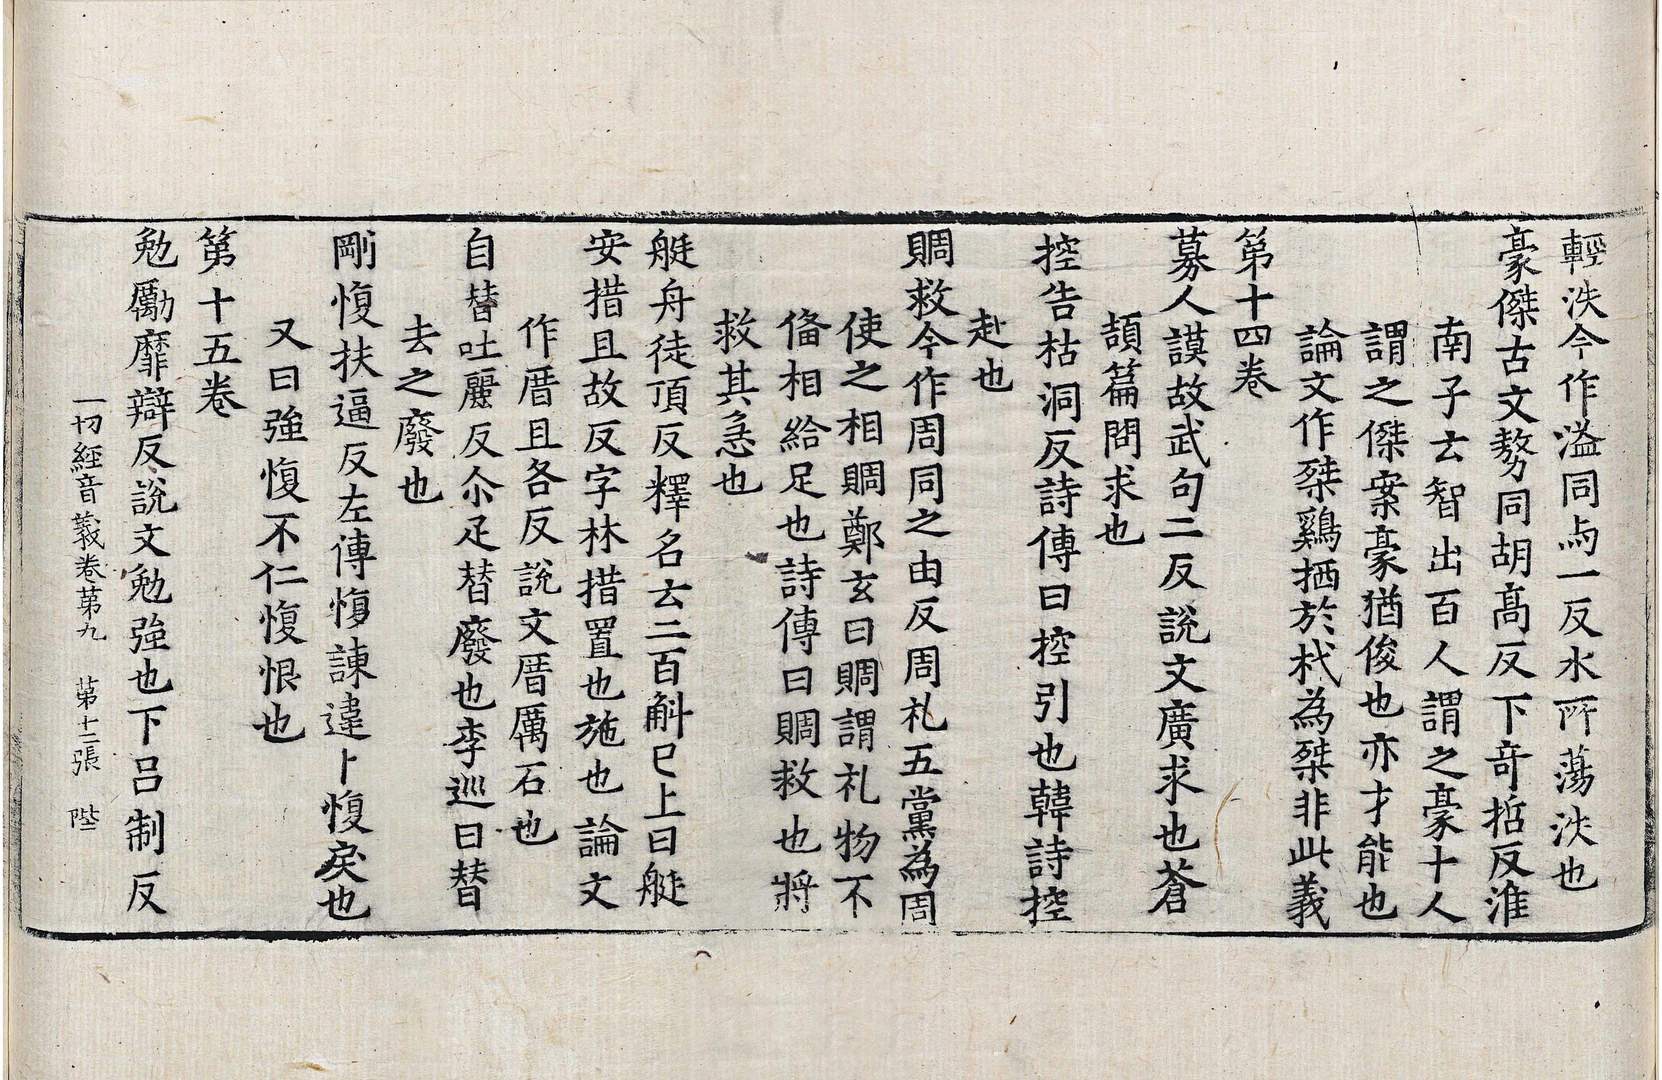 輕泆今作溢同与一反水所蕩泆也
豪傑古文勢同胡高反下奇哲反淮
南子云智出百人謂之豪十人
謂之傑案豪猶俊也亦才能也
論文作桀鷄栖於杙為桀非此義
第十四卷
募人謨故武句二反說文廣求也蒼
頡篇問求也
控告枯洞反詩傳曰控引也韓詩控
赴也
賙救今作周同之由反周礼五黨為周
使之相賙鄭玄曰賙謂礼物不
俻相給足也詩傳曰賙救也將
救其急也
艇舟徒頂反釋名云二百斛已上曰艇
安措且故反字林措置也施也論文
作厝且各反說文厝厲石也
自替吐麗反尒疋替廢也李巡曰替
去之廢也
剛愎扶逼反左傳愎諫違卜愎戾也
又曰強愎不仁愎恨也
第十五卷
勉勵靡辯反說文勉強也下呂制反
一切經音義卷第九 第十二張 陛